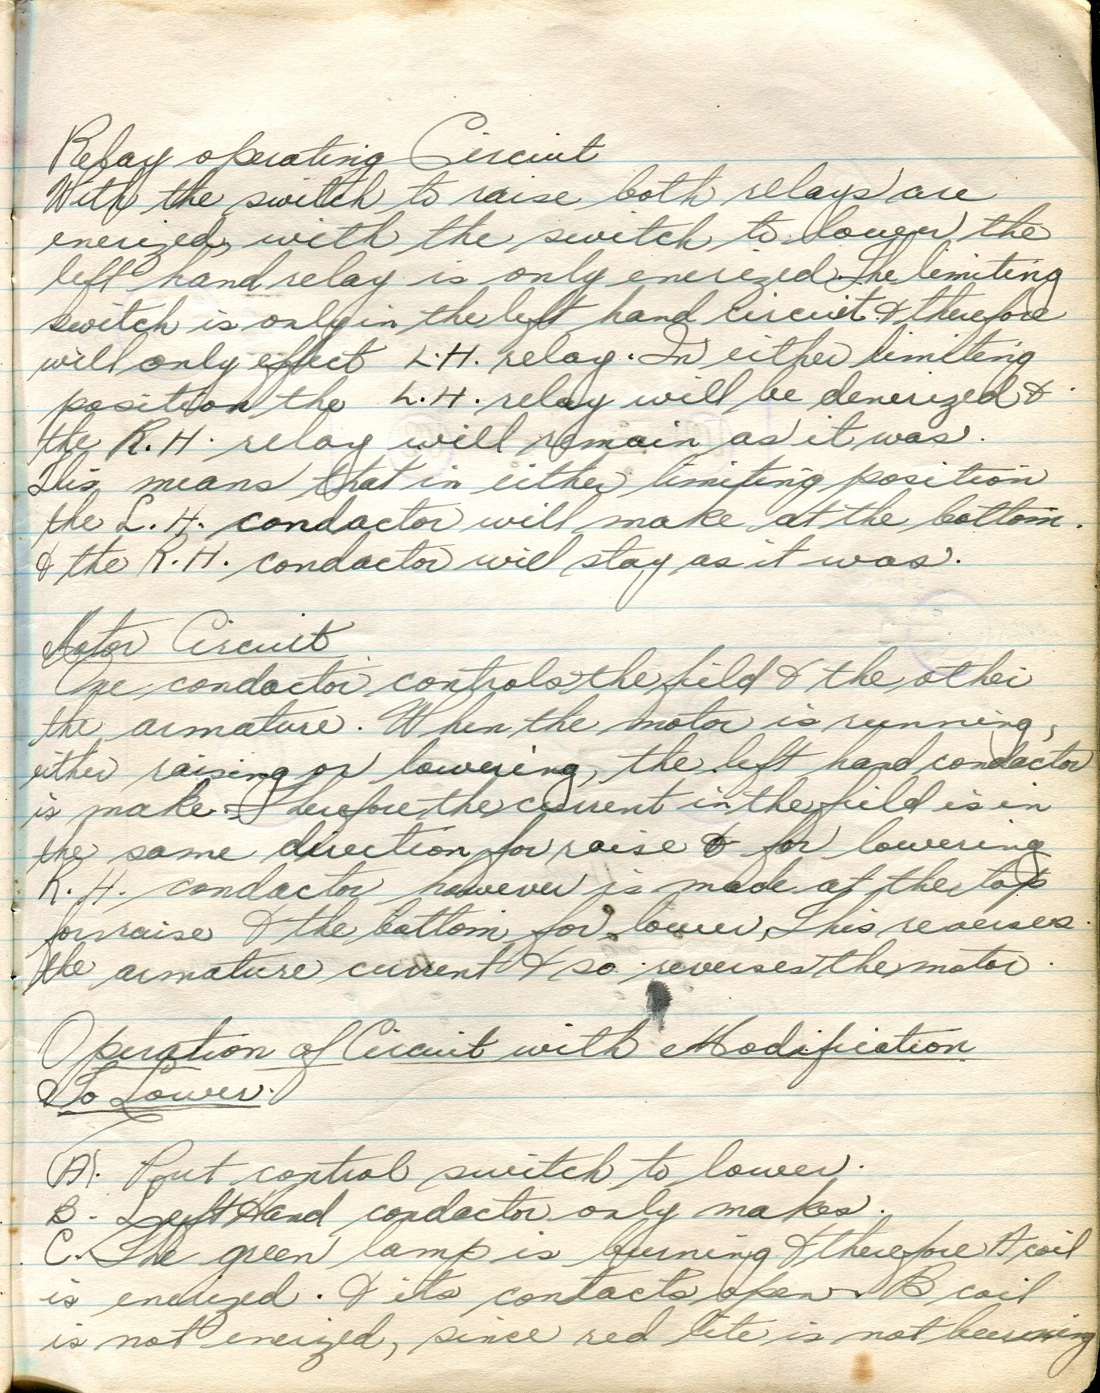 Relay operating Circuit
With the switch to raise both relays are
enerized, with the switch to lower the
left hand relay is only enerized. The limiting
switch is only in the left hand circuit & therefore
will only effect L.H. relay. In either limiting
position the L.H. relay will be denerized &
the R.H. relay will remain as it was.
This means that in either limiting position
the L.H. condactor will make at the bottom.
& the R.H. condactor will stay as it was.
Motor Circuit
One condactor controls the field & the other
the armature. When the motor is running,
either raising or lowering, the left hand condactor
is make. Therefore the current in the field is in
the same direction for raise & for lowering
R.H. condactor however is made at the top
for raise & the bottom for lower. This reverses
the armature current & so reverses the motor.
Operation of Circuit with Modification
To Lower.
A. Put control switch to lower.
B. Left Hand condactor only makes.
C. The green lamp is burning & therefore A coil
is enerized. & its contacts open. B coil
is not enerized, since red lite is not burning